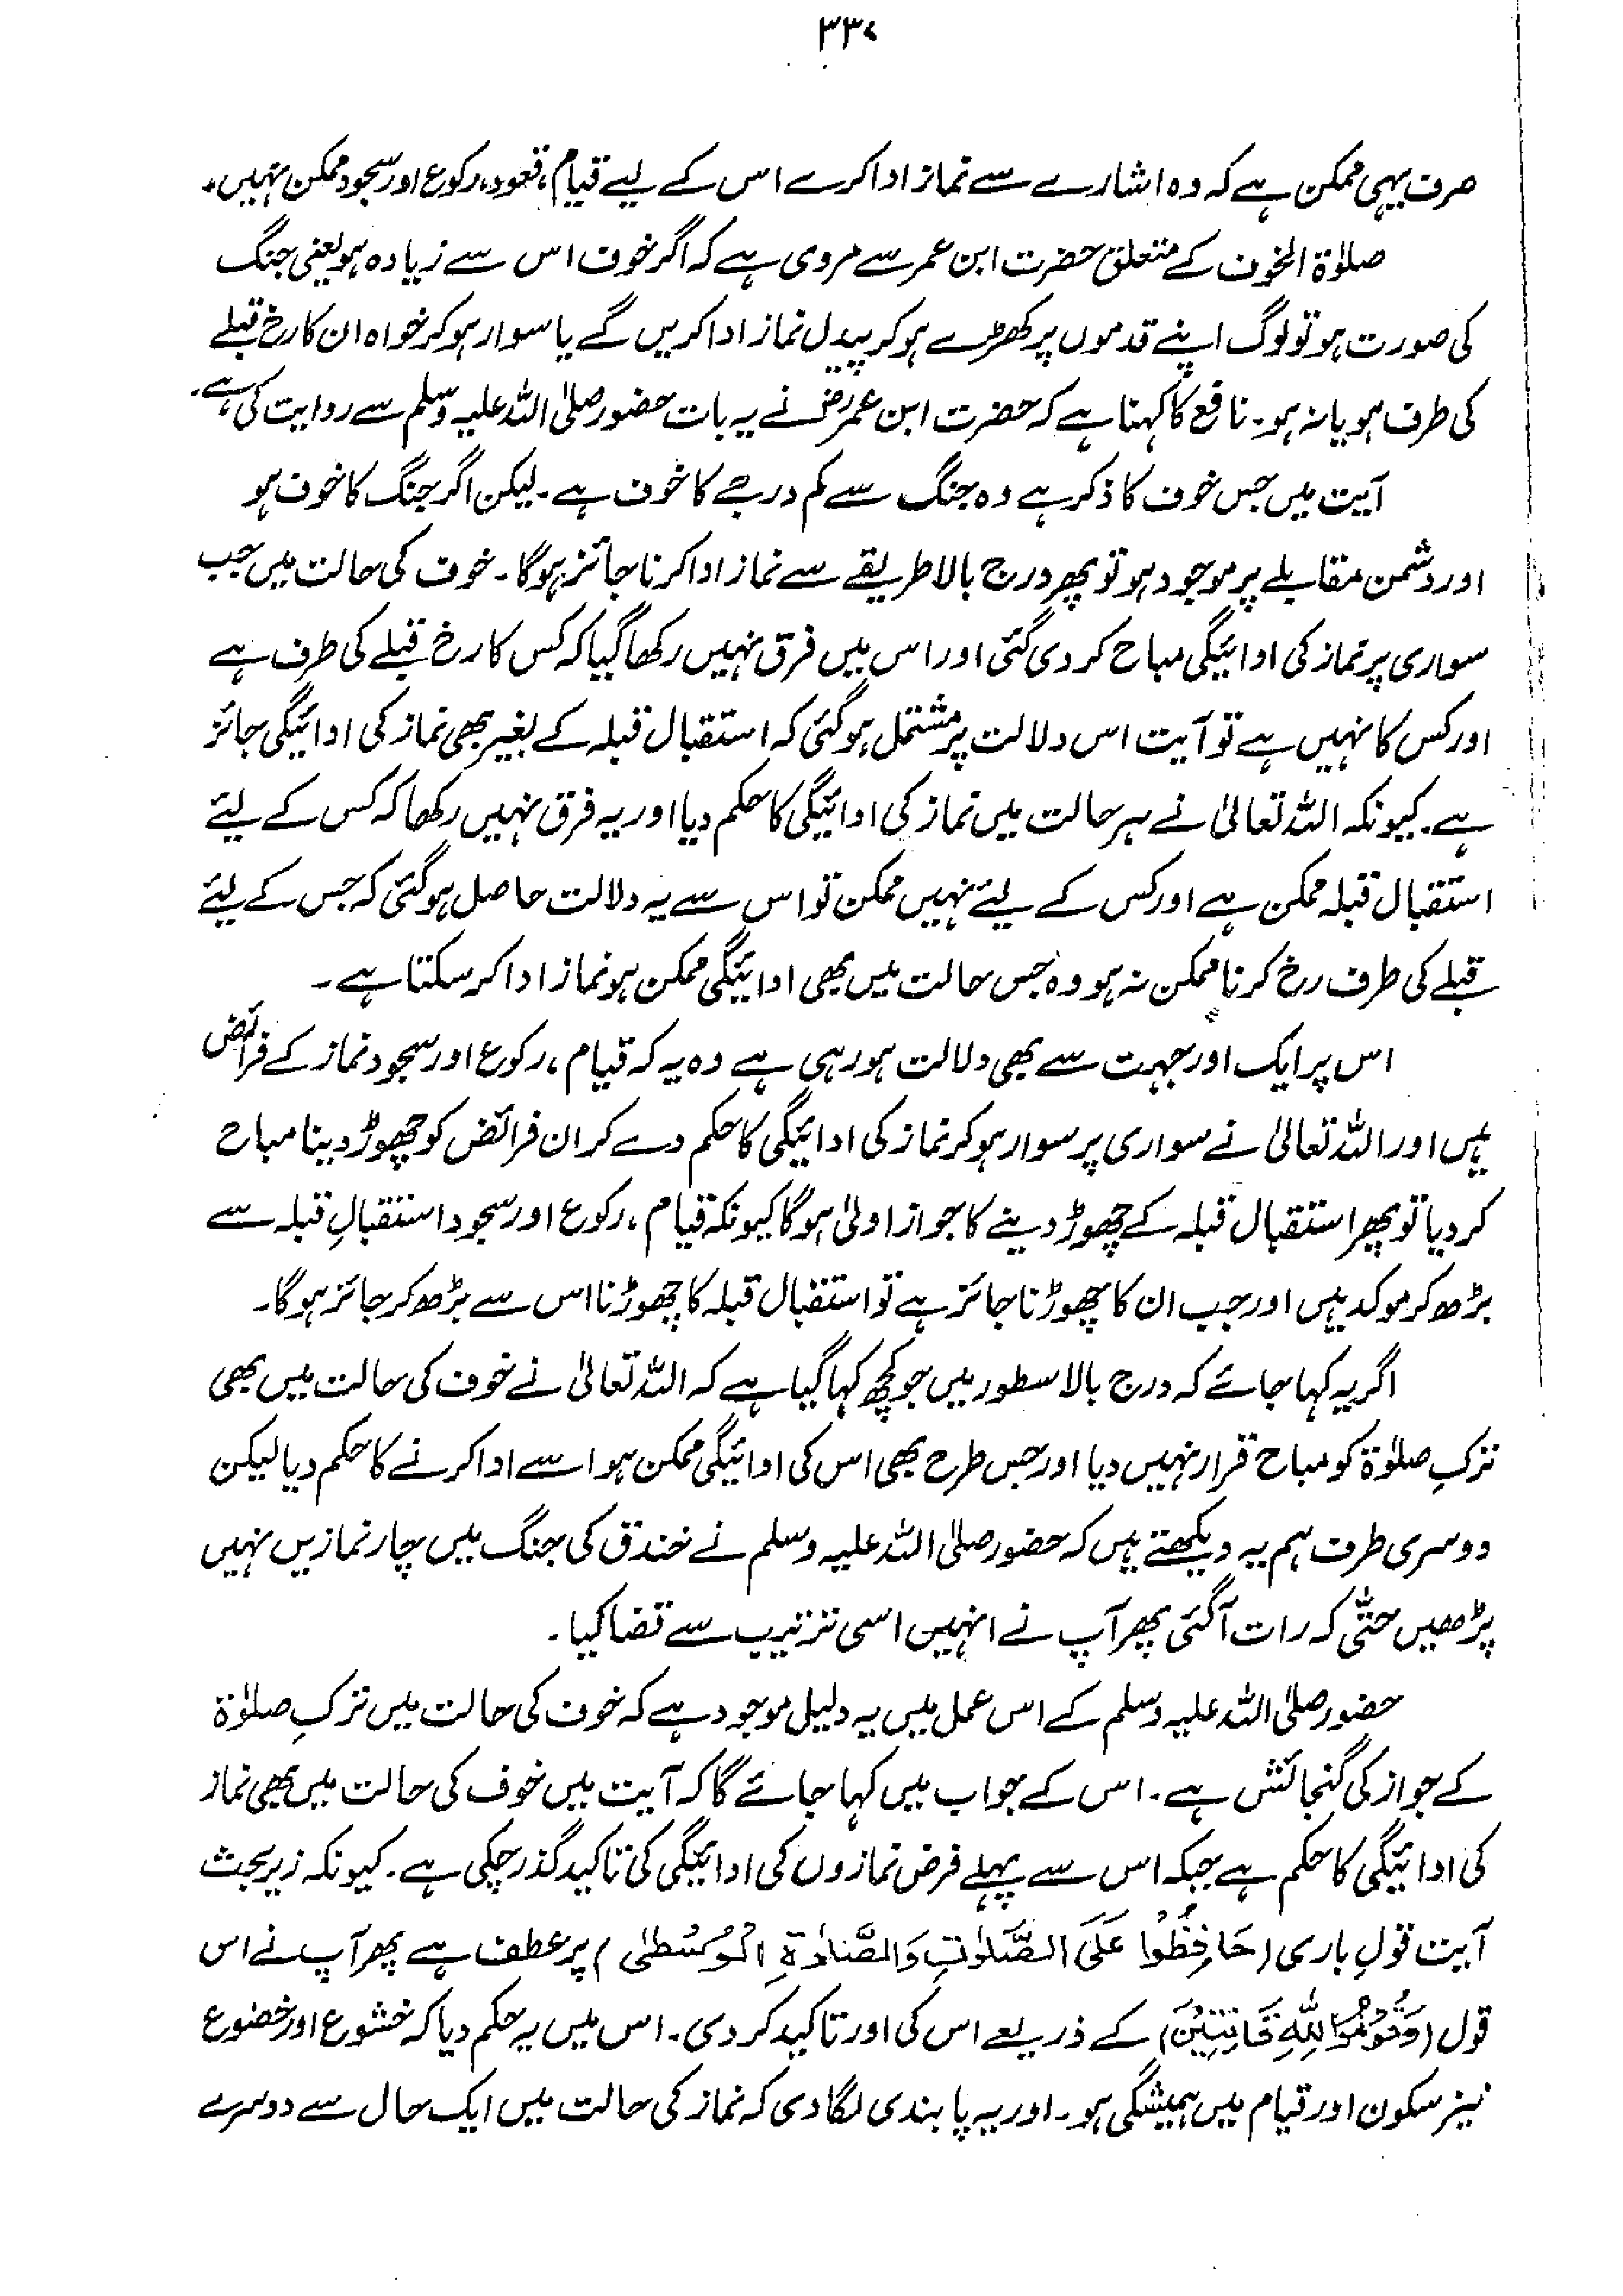 ۳۳۷
صرف یہی ممکن ہے کہ وہ اشارے سے نماز ادا کرے اس کے لیے قیام، قعود، رکوع اور سجود ممکن نہیں۔
صلوٰۃ الخوف کے متعلق حضرت ابن عمر سے مروی ہے کہ اگر خوف اس سے زیادہ ہو یعنی جنگ
کی صورت ہو تو لوگ اپنے قدموں پر کھڑے ہو کر پیدل نماز ادا کریں گے یا سوار ہو کر خواہ ان کا رخ قبلے
کی طرف ہو یا نہ ہو۔ نافع کا کہنا ہے کہ حضرت ابن عمرؓ نے یہ بات حضور صلی اللہ علیہ وسلم سے روایت کی ہے۔
آیت میں جس خوف کا ذکر ہے وہ جنگ سے کم درجے کا خوف ہے۔ لیکن اگر جنگ کا خوف ہو
اور دشمن مقابلے پر موجود ہو تو پھر درج بالا طریقے سے نماز ادا کرنا جائز ہوگا۔ خوف کی حالت میں جب
سواری پر نماز کی ادائیگی مباح کر دی گئی اور اس میں فرق نہیں رکھا گیا کہ کس کا رخ قبلے کی طرف ہے
اور کس کا نہیں ہے تو آیت اس دلالت پر مشتمل ہو گئی کہ استقبال قبلہ کے بغیر بھی نماز کی ادائیگی جائز
ہے۔ کیونکہ اللہ تعالیٰ نے ہر حالت میں نماز کی ادائیگی کا حکم دیا اور یہ فرق نہیں رکھا کہ کس کے لیئے
استقبال قبلہ ممکن ہے اور کس کے لیئے نہیں ممکن تو اس سے یہ دلالت حاصل ہو گئی کہ جس کے لیئے
قبلے کی طرف رخ کرنا ممکن نہ ہو وہ جس حالت میں بھی ادائیگی ممکن ہو نماز ادا کر سکتا ہے۔
اس پر ایک اور جہت سے بھی دلالت ہو رہی ہے وہ یہ کہ قیام، رکوع اور سجود نماز کے فرائض
ہیں اور اللہ تعالیٰ نے سواری پر سوار ہو کر نماز کی ادائیگی کا حکم دے کر ان فرائض کو چھوڑ دینا مباح
کر دیا تو پھر استقبال قبلہ کے چھوڑ دینے کا جواز اولیٰ ہوگا کیونکہ قیام، رکوع اور سجود استقبالِ قبلہ سے
بڑھ کر موکد ہیں اور جب ان کا چھوڑنا جائز ہے تو استقبال قبلہ کا چھوڑنا اس سے بڑھ کر جائز ہوگا۔
اگر یہ کہا جائے کہ درج بالا سطور میں جو کچھ کہا گیا ہے کہ اللہ تعالیٰ نے خوف کی حالت میں بھی
ترکِ صلوٰۃ کو مباح قرار نہیں دیا اور جس طرح بھی اس کی ادائیگی ممکن ہو اسے ادا کرنے کا حکم دیا لیکن
دوسری طرف ہم یہ دیکھتے ہیں کہ حضور صلی اللہ علیہ وسلم نے خندق کی جنگ میں چار نمازیں نہیں
پڑھیں حتّٰی کہ رات آگئی پھر آپ نے انہیں اسی ترتیب سے قضا کیا۔
حضور صلی اللہ علیہ وسلم کے اس عمل میں یہ دلیل موجود ہے کہ خوف کی حالت میں ترکِ صلوٰۃ
کے جواز کی گنجائش ہے۔ اس کے جواب میں کہا جائے گا کہ آیت میں خوف کی حالت میں بھی نماز
کی ادائیگی کا حکم ہے جبکہ اس سے پہلے فرض نمازوں کی ادائیگی کی تاکید گذر چکی ہے۔ کیونکہ زیر بحث
آیت قولِ باری (حَافِظُوْا عَلَی الصَّلَوٰتِ وَالصَّلوٰۃِ الْوُسْطٰی) پر عطف ہے پھر آپ نے اس
قول (وَقُوْمُوْا لِلّٰہِ قَانِتِیْنَ) کے ذریعے اس کی اور تاکید کر دی۔ اس میں یہ حکم دیا کہ خشوع اور خضوع
نیز سکون اور قیام میں ہمیشگی ہو۔ اور یہ پابندی لگا دی کہ نماز کی حالت میں ایک حال سے دوسرے